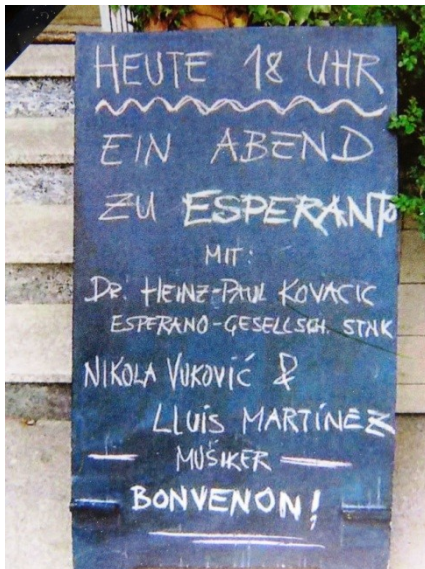 HEUTE 18 UHR
EIN ABEND
ZU ESPERANTO
MIT:
DR. HEINZ-PAUL KOVACIC
ESPERANO-GESELLSCH. STMK
NIKOLA VUKOVIĆ &
LLUIS MARTÍNEZ
MUSIKER
BONVENON!